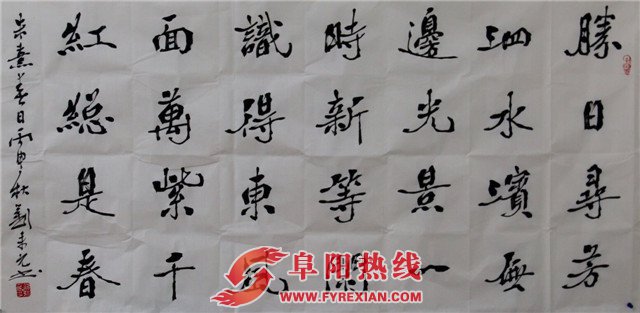 勝日尋芳
泗水濱無
邊光景一
時新等閑
識得東風
面萬紫千
紅總是春
朱熹春日丙申秋劉
阜阳热线
WWW.FYREXIAN.COM